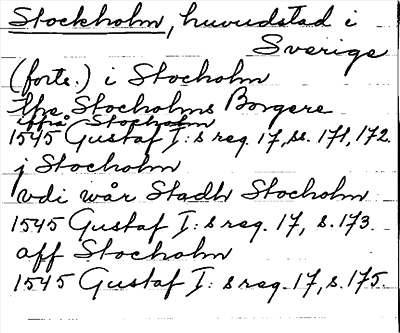 Stockholm, huvudstad i
Sverige
(forts.) i Stocholm
the Stocholms Borgere
ifrå Stocholm
1545 Gustaf I:s reg. 17, ss. 171, 172.
j Stocholm
vdi wår Stadh Stocholm
1545 Gustaf I:s reg. 17, s. 173.
aff Stocholm
1545 Gustaf I:s reg. 17, s. 175.